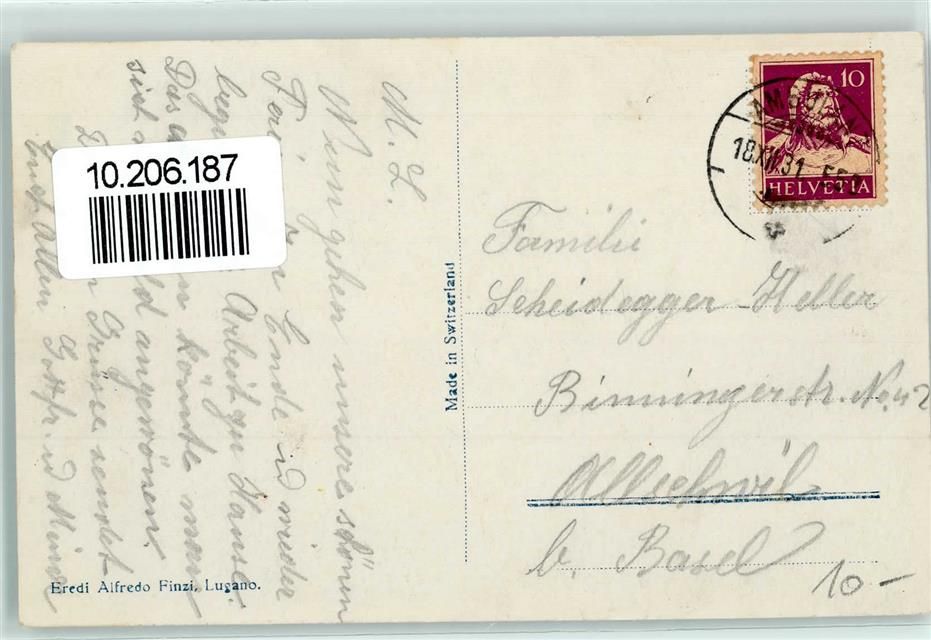 M. L.
Nun gehen unsere schönen
Feri zu Ende u wieder
Arbeit zu Hause.
Das könnte man
sich angewönen.
Grüsse sendet
Euch Allen Gottfr. u Mina
10.206.187
Eredi Alfredo Finzi, Lugano.
Made in Switzerland
10
HELVETIA
18.XII.31
Familie
Scheidegger-Heller
Binningerstr. No. 42
Allschwil
b. Basel
10-